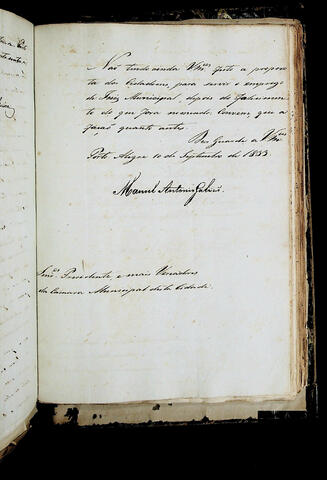 Não tendo ainda VMces feito a propos
ta dos Cidadãos, para servir o emprego
de Juiz Municipal, depois do
to do que fora nomeado, convem, que a
fação quanto antes.
Ds. Guarde a VMces
Porto Alegre 10 de Septembro de 1833.
Manuel Antonio Galvão.
Snres Presidente e mais Vereadores
da Camara Municipal desta Cidade.